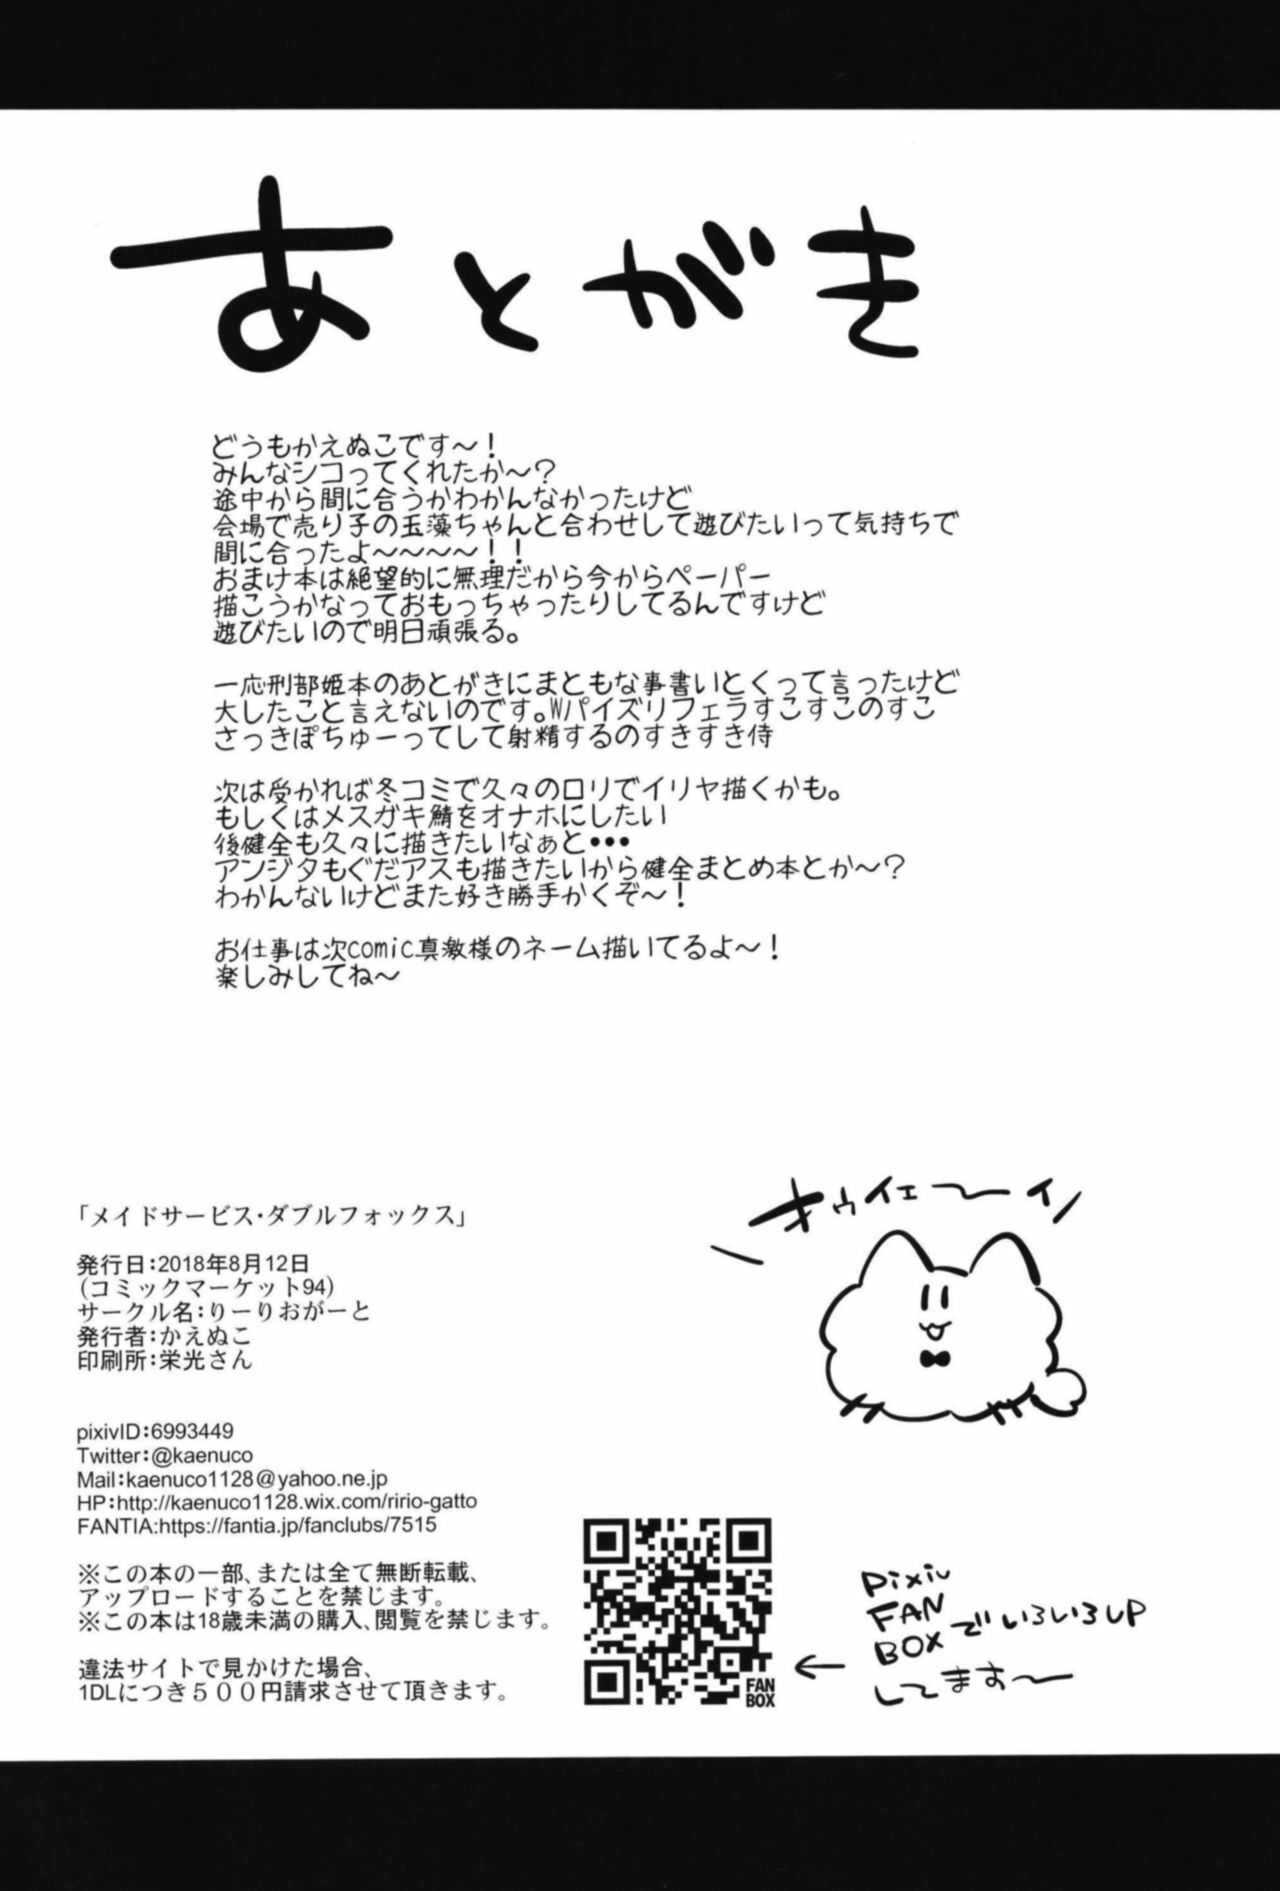 あとがき
どうもかえぬこです～！
みんなシコってくれたか～？
途中から間に合うかわかんなかったけど
会場で売り子の玉藻ちゃんと合わせして遊びたいって気持ちで
間に合ったよ～～～～！！
おまけ本は絶望的に無理だから今からペーパー
描こうかなっておもっちゃったりしてるんですけど
遊びたいので明日頑張る。
一応刑部姫本のあとがきにまともな事書いとくって言ったけど
大したこと言えないのです。Wパイズリフェラすこすこのすこ
さっきぽちゅーってして射精するのすきすき侍
次は受かれば冬コミで久々のロリでイリヤ描くかも。
もしくはメスガキ鯖をオナホにしたい
後健全も久々に描きたいなぁと・・・
アンジタもぐだアスも描きたいから健全まとめ本とか～？
わかんないけどまた好き勝手かくぞ～！
お仕事は次comic真激様のネーム描いてるよ～！
楽しみしてね～
オゥイェ～イ
「メイドサービス・ダブルフォックス」
発行日：2018年8月12日
（コミックマーケット94）
サークル名：りーりおがーと
発行者：かえぬこ
印刷所：栄光さん
pixivID：6993449
Twitter：@kaenuco
Mail：kaenuco1128@yahoo.ne.jp
HP：http://kaenuco1128.wix.com/ririo-gatto
FANTIA:https://fantia.jp/fanclubs/7515
※この本の一部、または全て無断転載、
アップロードすることを禁じます。
※この本は18歳未満の購入、閲覧を禁じます。
違法サイトで見かけた場合、
1DLにつき５００円請求させて頂きます。
FAN
BOX
pixiv
FAN
BOXでいろいろUP
してます～